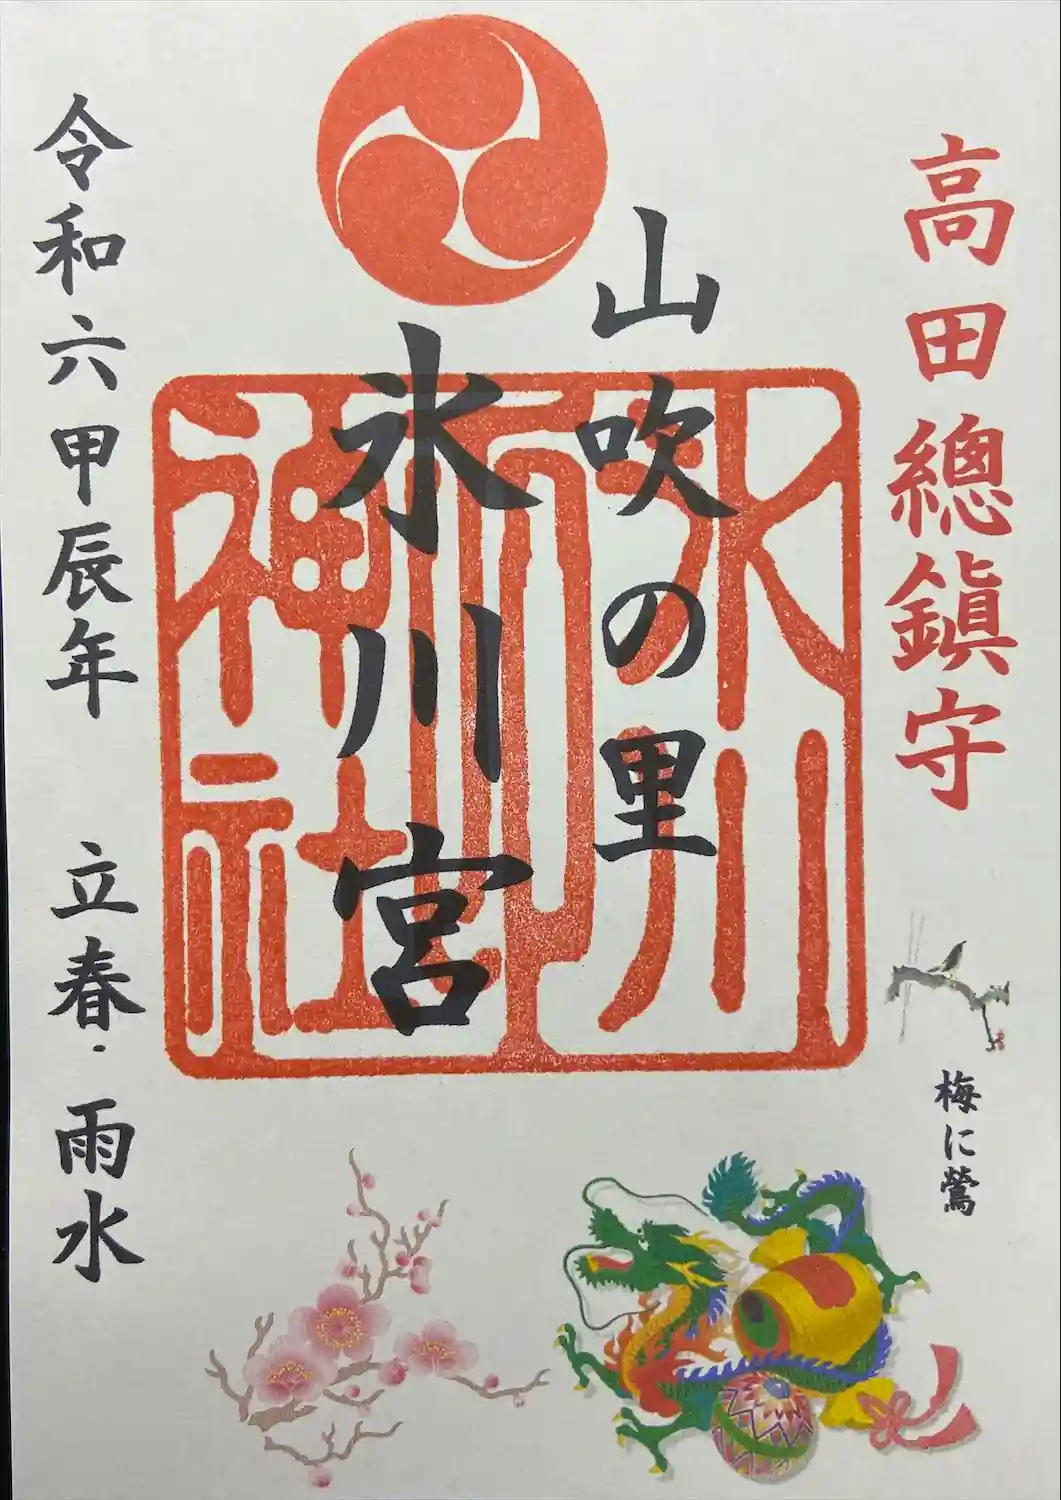 高田總鎮守
山吹の里
氷川宮
氷川神社
令和六甲辰年 立春・雨水
梅に鶯